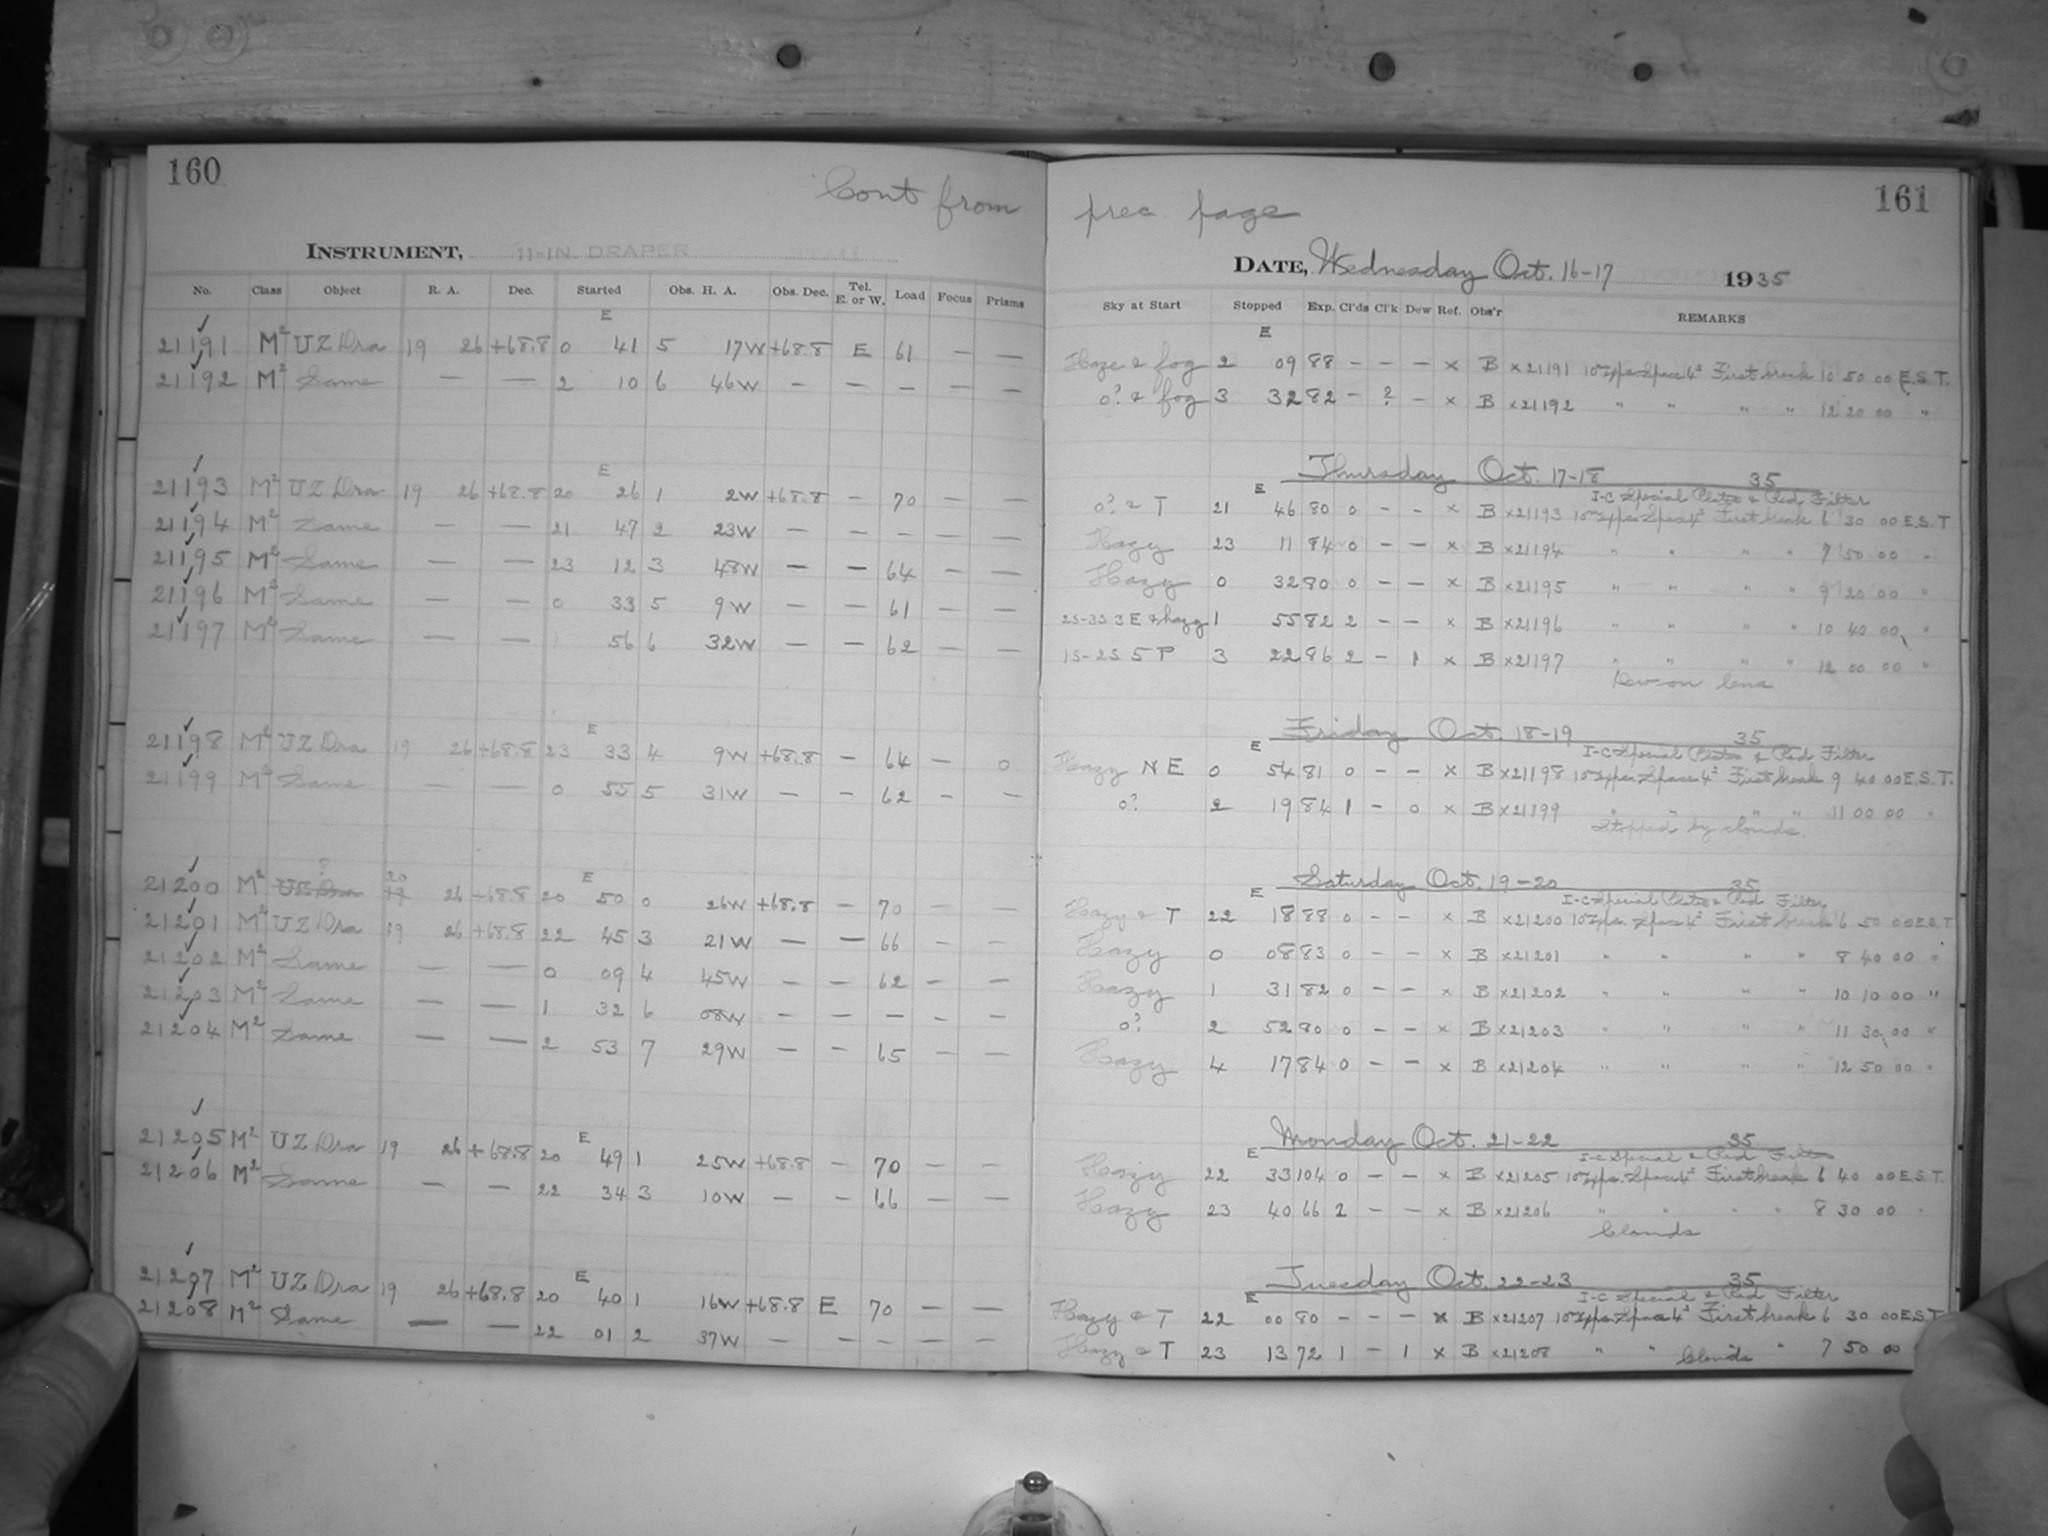 160
Cont from
INSTRUMENT, 11-IN. DRAPER
No. Class Object R. A. Dec. Started Obs. H. A. Obs. Dec. Tel. E. or W. Load Focus Prisms
E
21191 M² UZ Dra 19 26 +68.8 0 41 5 17W +68.8 E 61 — —
21192 M² Same — — 2 10 6 46W — — — — —
E
21193 M² UZ Dra 19 26 +68.8 20 26 1 2W +68.8 — 70 — —
21194 M² Same — — 21 47 2 23W — — — — —
21195 M² Same — — 23 12 3 48W — — 64 — —
21196 M² Same — — 0 33 5 9W — — 61 — —
21197 M² Same — — 56 6 32W — — 62 — —
E
21198 M² UZ Dra 19 26 +68.8 23 33 4 9W +68.8 — 64 — 0
21199 M² Same — — 0 55 5 31W — — 62 — —
? 20 E
21200 M² UZ Dra 19 26 +68.8 20 50 0 26W +68.8 — 70 — —
21201 M² UZ Dra 19 26 +68.8 22 45 3 21W — — 66 — —
21202 M² Same — — 0 09 4 45W — — 62 — —
21203 M² Same — — 1 32 6 08W — — — — —
21204 M² Same — — 2 53 7 29W — — 65 — —
E
21205 M² UZ Dra 19 26 +68.8 20 49 1 25W +68.8 — 70 — —
21206 M² Same — — 22 34 3 10W — — 66 — —
E
21207 M² UZ Dra 19 26 +68.8 20 40 1 16W +68.8 E 70 — —
21208 M² Same — — 22 01 2 37W — — — — —
161
prec. page
DATE, Wednesday Oct. 16-17 1935
Sky at Start Stopped Exp. Cl'ds Cl'k Dew Ref. Obs'r REMARKS
E
Haze & fog 2 09 88 — — — x B x21191 10 Exps. Space 4ˢ First break 10 50 00 E.S.T.
0? & fog 3 32 82 — ? — x B x21192 " " " " 12 20 00 "
Thursday Oct. 17-18 35
E I-C Special Plates & Red Filter
0? & T 21 46 80 0 — — x B x21193 10 Exps. Space 4ˢ First break 6 30 00 E.S.T
Hazy 23 11 84 0 — — x B x21194 " " " " 7 50 00 "
Hazy 0 32 80 0 — — x B x21195 " " " " 9 20 00 "
2S-3S 3 E & hazy 1 55 82 2 — — x B x21196 " " " " 10 40 00 "
1S-2S 5 P 3 22 86 2 — 1 x B x21197 " " " " 12 00 00 "
Dew on lens
Friday Oct. 18-19 35
E I-C Special Plates & Red Filter
Hazy N E 0 54 81 0 — — x B x21198 10 Exps. Space 4ˢ First break 9 40 00 E.S.T.
0? 2 19 84 1 — 0 x B x21199 " " " " 11 00 00 "
Stopped by clouds.
Saturday Oct. 19-20 35
E I-C Special Plates & Red Filter
Hazy & T 22 18 88 0 — — x B x21200 10 Exps. Space 4ˢ First break 6 50 00 E.S.T
Hazy 0 08 83 0 — — x B x21201 " " " " 8 40 00 "
Hazy 1 31 82 0 — — x B x21202 " " " " 10 10 00 "
0? 2 52 80 0 — — x B x21203 " " " " 11 30 00 "
Hazy 4 17 84 0 — — x B x21204 " " " " 12 50 00 "
Monday Oct. 21-22 35
E I-C Special & Red Filter
Hazy 22 33 104 0 — — x B x21205 10 Exps. Space 4ˢ First break 6 40 00 E.S.T.
Hazy 23 40 66 2 — — x B x21206 " " " " 8 30 00 "
Clouds
Tuesday Oct. 22-23 35
E I-C Special & Red Filter
Hazy & T 22 00 80 — — — x B x21207 10 Exps. Space 4ˢ First break 6 30 00 E.S.T
Hazy & T 23 13 72 1 — 1 x B x21208 " " " 7 50 00
Clouds